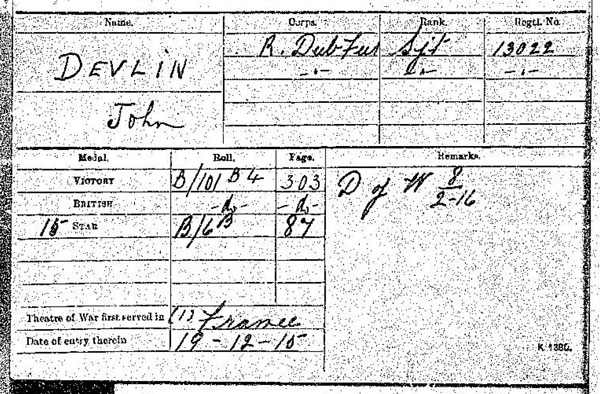 Name. Corps. Rank. Regtl. No.
DEVLIN R. Dub Fus Sjt 13022
John -"- "- -"-
Medal. Roll. Page. Remarks.
VICTORY B/101 B4 303 D of W 8/2-16
BRITISH -do- -do-
15 STAR B/6B 87
Theatre of War first served in (1) France
Date of entry therein 19-12-15
K 1380.